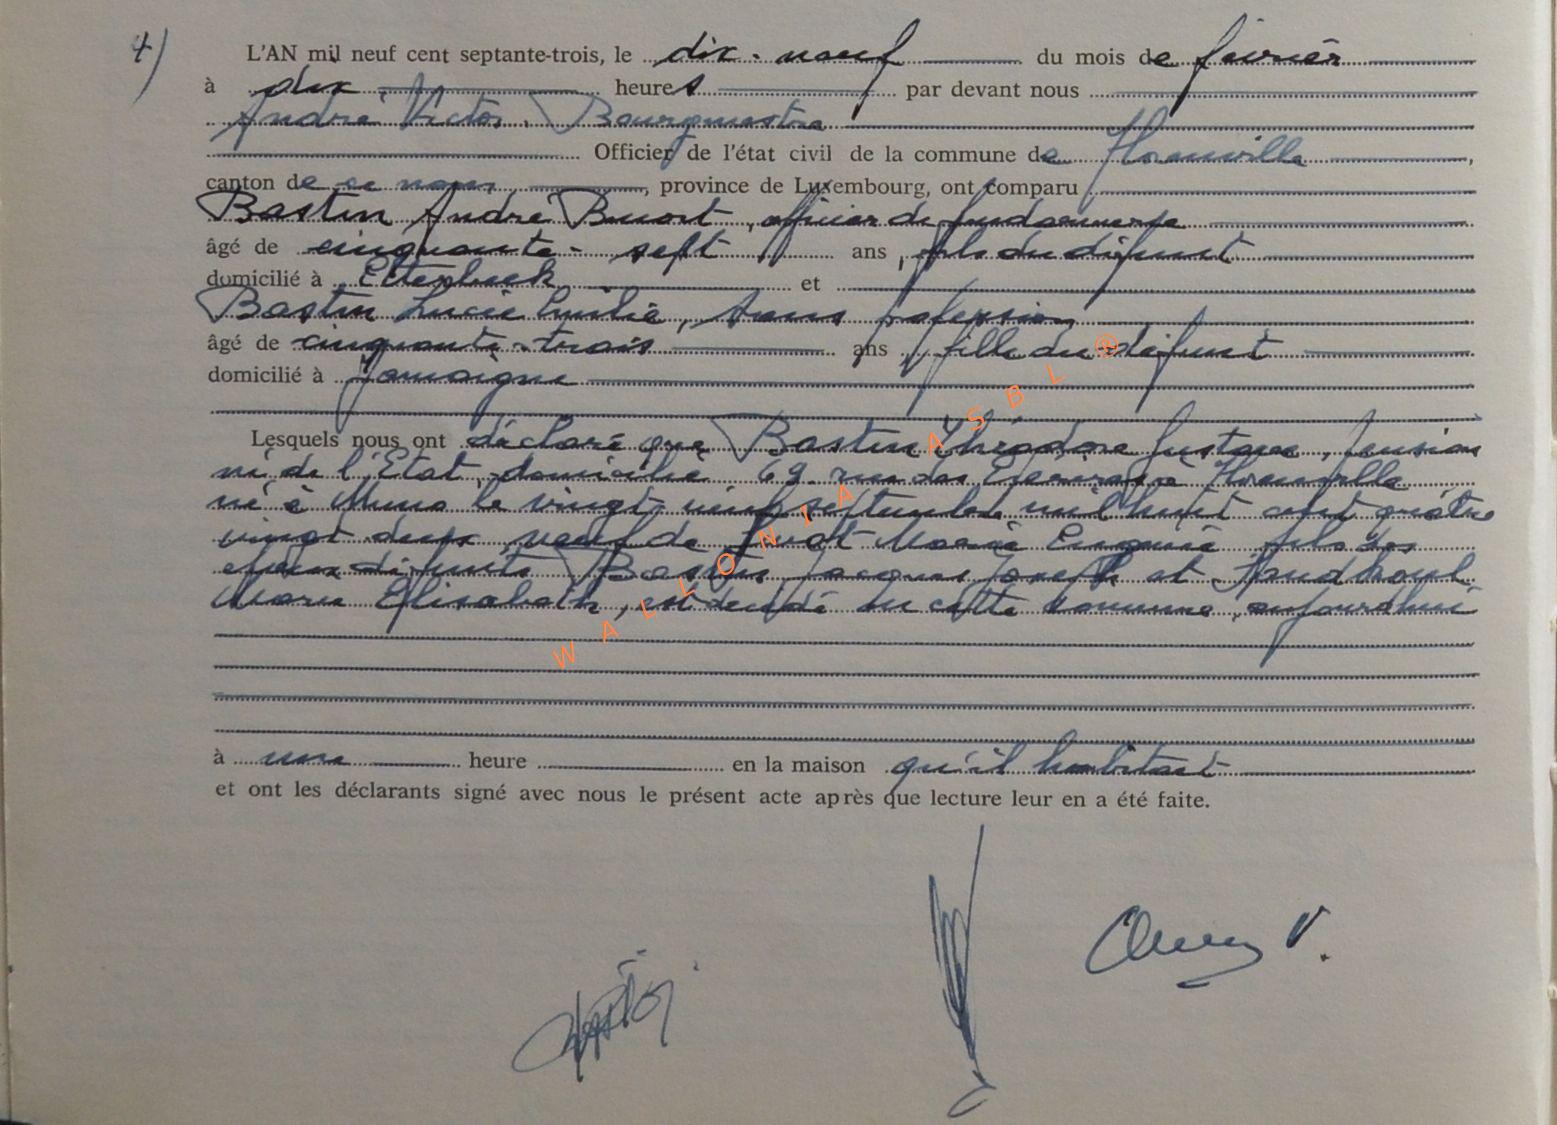 4)
L'AN mil neuf cent septante-trois, le dix-neuf du mois de février
à dix heures par devant nous
André Victor, Bourgmestre
Officier de l'état civil de la commune de Florenville
canton de ce nom, province de Luxembourg, ont comparu
Bastin André Benoit, officier de gendarmerie
âgé de cinquante-sept ans, fils du défunt
domicilié à Etterbeek et
Bastin Lucie Emilie, sans profession
âgé de cinquante-trois ans, fille du défunt
domicilié à Jamoigne
Lesquels nous ont déclaré que Bastin Théodore Gustave, pension
né de l'Etat, domicilié 69 rue des à Florenville
né à Muno le vingt-neuf septembre mil huit cent quatre
vingt deux, veuf de Marie Eugénie fils des
époux défunts Bastin Jacques Joseph et
Marie Elisabeth, est décédé en cette commune, aujourd'hui
à une heure en la maison qu'il habitait
et ont les déclarants signé avec nous le présent acte après que lecture leur en a été faite.
WALLONIA ASBL ®